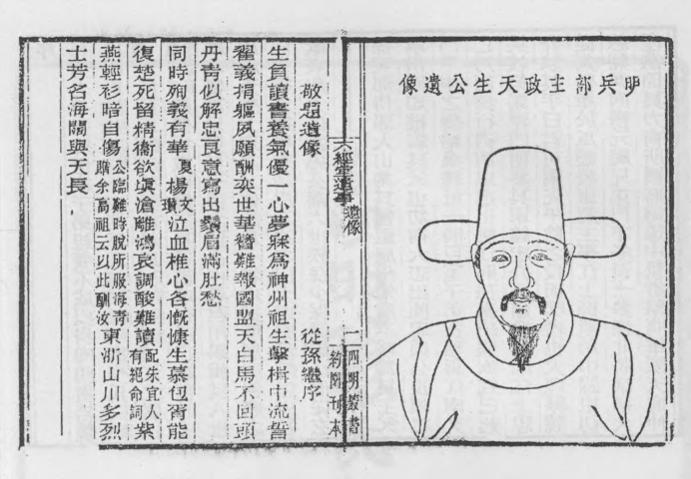 明兵部主政天生公遺像
六經堂遺事 遺像 一 四明叢書 約園刊本
敬題遺像 從孫繼序
生員讀書養氣優一心夢寐為神州祖生擊楫中流誓
翟義捐軀夙願酬奕世華簪難報國盟天白馬不回頭
丹青似解忠良意寫出鬚眉滿肚愁
同時殉義有華夏楊文瓚泣血椎心各慨慷生慕包胥能
復楚死留精衛欲填滄離鴻哀調酸難讀配朱宜人有絕命詞紫
燕輕衫暗自傷公臨難時脫所服海青贈余高祖云以此酬汝東浙山川多烈
士芳名海闊與天長